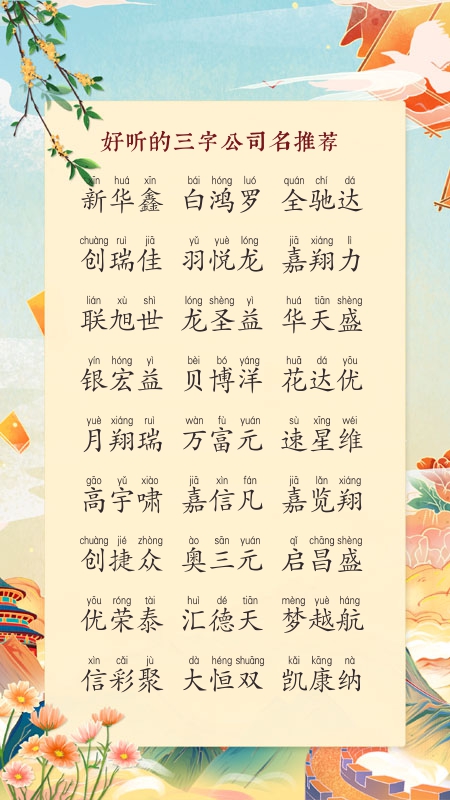 好听的三字公司名推荐
xīn huá xīn bái hóng luó quán chí dá
新华鑫 白鸿罗 全驰达
chuàng ruì jiā yǔ yuè lóng jiā xiáng lì
创瑞佳 羽悦龙 嘉翔力
lián xù shì lóng shèng yì huá tiān shèng
联旭世 龙圣益 华天盛
yín hóng yì bèi bó yáng huā dá yōu
银宏益 贝博洋 花达优
yuè xiáng ruì wàn fù yuán sù xīng wéi
月翔瑞 万富元 速星维
gāo yǔ xiào jiā xìn fán jiā lǎn xiáng
高宇啸 嘉信凡 嘉览翔
chuàng jié zhòng ào sān yuán qǐ chāng shèng
创捷众 奥三元 启昌盛
yōu róng tài huì dé tiān mèng yuè háng
优荣泰 汇德天 梦越航
xìn cǎi jù dà héng shuāng kǎi kāng nà
信彩聚 大恒双 凯康纳